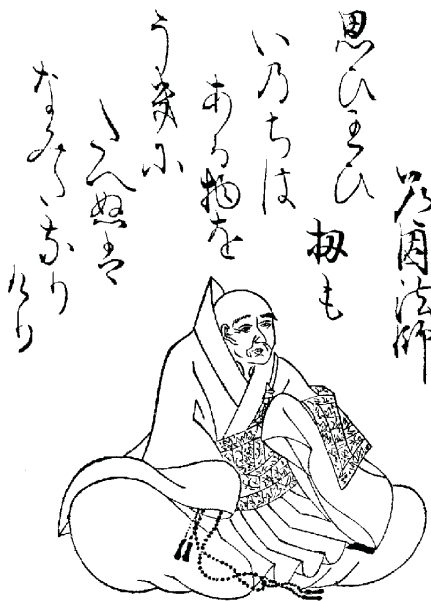 道因法師
思ひわひ
扨も
いのちは
ある物を
うきに
たへぬは
なみたなり
けり